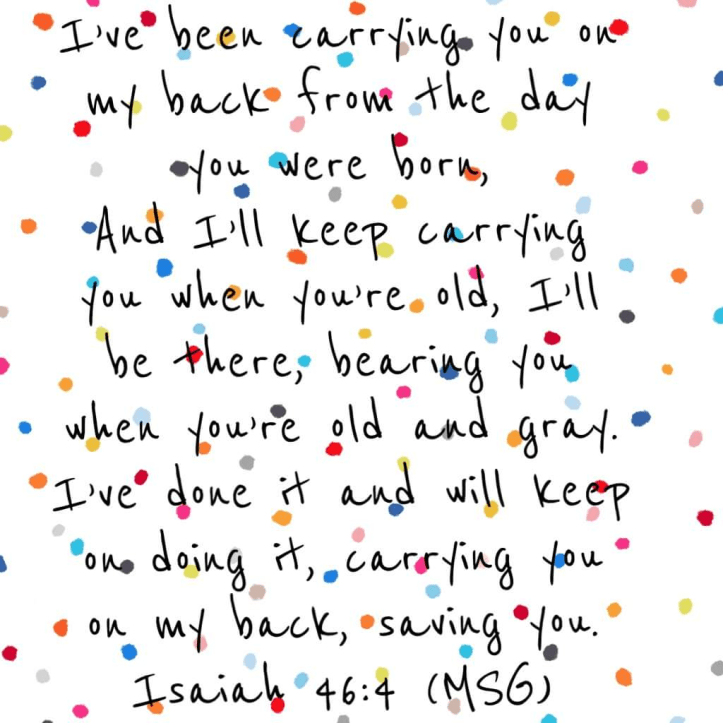 I've been carrying you on
my back from the day
you were born,
And I'll keep carrying
you when you're old, I'll
be there, bearing you
when you're old and gray.
I've done it and will keep
on doing it, carrying you
on my back, saving you.
Isaiah 46:4 (MSG)